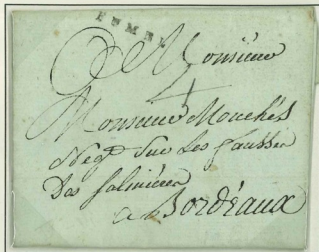 RUMEL
A Monsieur
Monsieur Mouchès
Negt Sur Les fausses
Des Salinieres
a Bordeaux